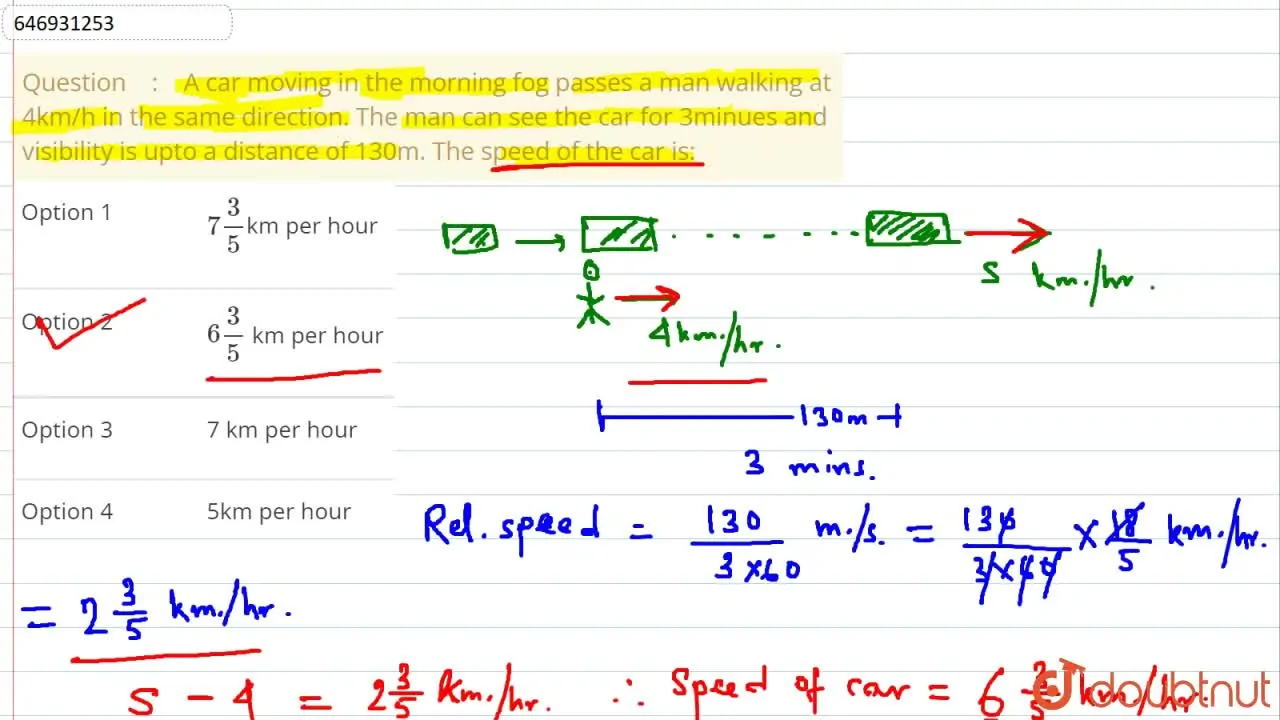 646931253
Question : A car moving in the morning fog passes a man walking at
4km/h in the same direction. The man can see the car for 3minues and
visibility is upto a distance of 130m. The speed of the car is:
Option 1 7 3/5 km per hour
Option 2 6 3/5 km per hour
Option 3 7 km per hour
Option 4 5km per hour
S km./hr.
4km./hr.
130m
3 mins.
Rel. speed = 130/(3×60) m./s. = 130/(3×60) × 18/5 km./hr.
= 2 3/5 km./hr.
S - 4 = 2 3/5 km./hr. ∴ Speed of car = 6 3/5 km/hr.
doubtnut